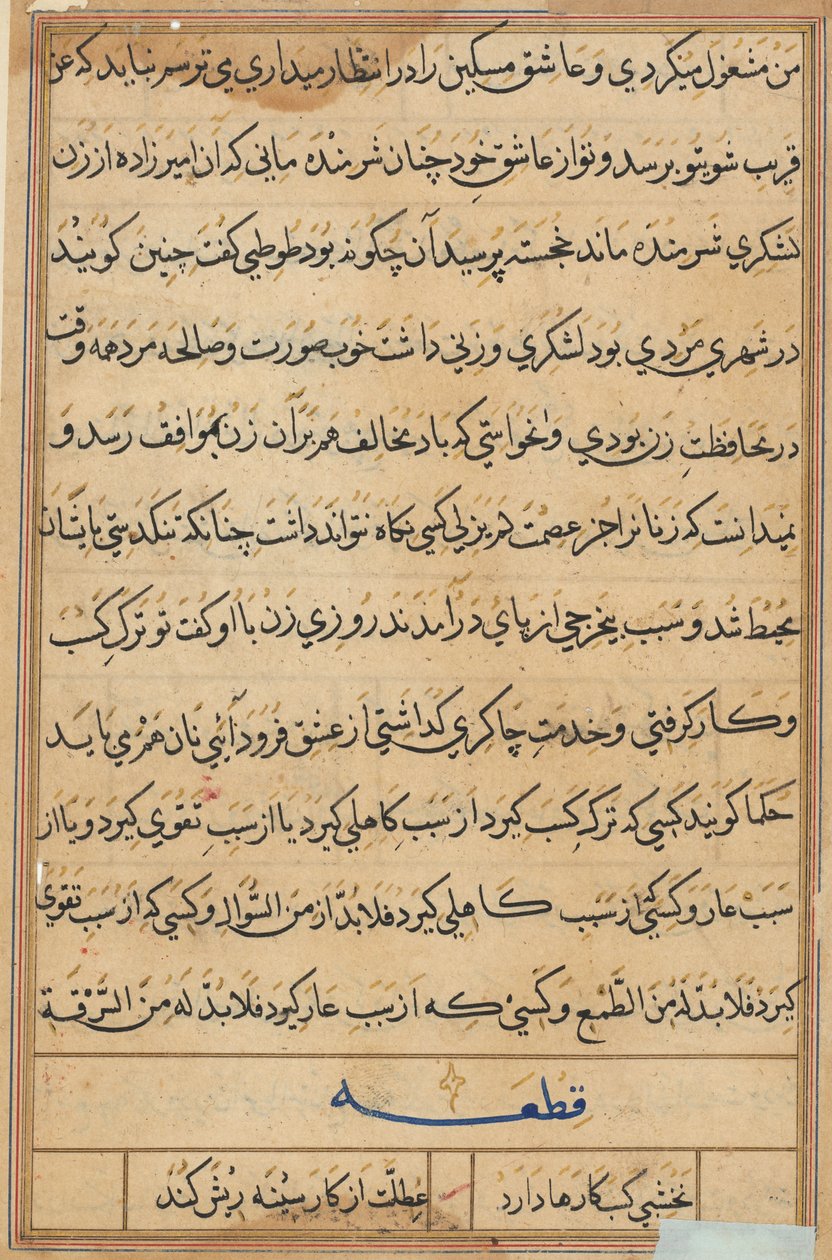 من مشغول میکردي و عاشق مسکین را در انتظار میداري مي ترسم نباید که عن
قریب شوي تو برسد و تو از عاشق خود چنان شرمنده ماني که آن امیرزاده از زن
لشکري شرمنده ماند خجسته پرسید آن چکونه بود طوطي کفت چنین کویند
در شهري مردي بود لشکري و زني داشت خوب صورت و صالحه مرد همه وقت
در محافظت زن بودي و نخواستي که باد مخالف هم بر آن زن بموافق رسد و
نمیدانست که زنانرا جز عصمت لم یزلي کسي نکاه نتواند داشت چنانکه تنکدستي بایشان
محیط شد و سبب بیخرجي از پاي درآمدند روزي زن با او کفت تو ترک کسب
و کار کرفتي و خدمت چاکري کذاشتي از عشق فرود آئي نان هم مي باید
حکما کویند کسي که ترک کسب کیرد از سبب کاهلي کیرد یا از سبب تقوي کیرد و یا از
سبب عار و کسي کز سبب کاهلي کیرد فلا بد از من السؤال و کسي که از سبب تقوي
کیرد فلا بد له من الطمع و کسي که از سبب عار کیرد فلا بد له من السرقة
قطعه
نخشبي کسب کارها دارد
عطلت از کار سینه ریش کند